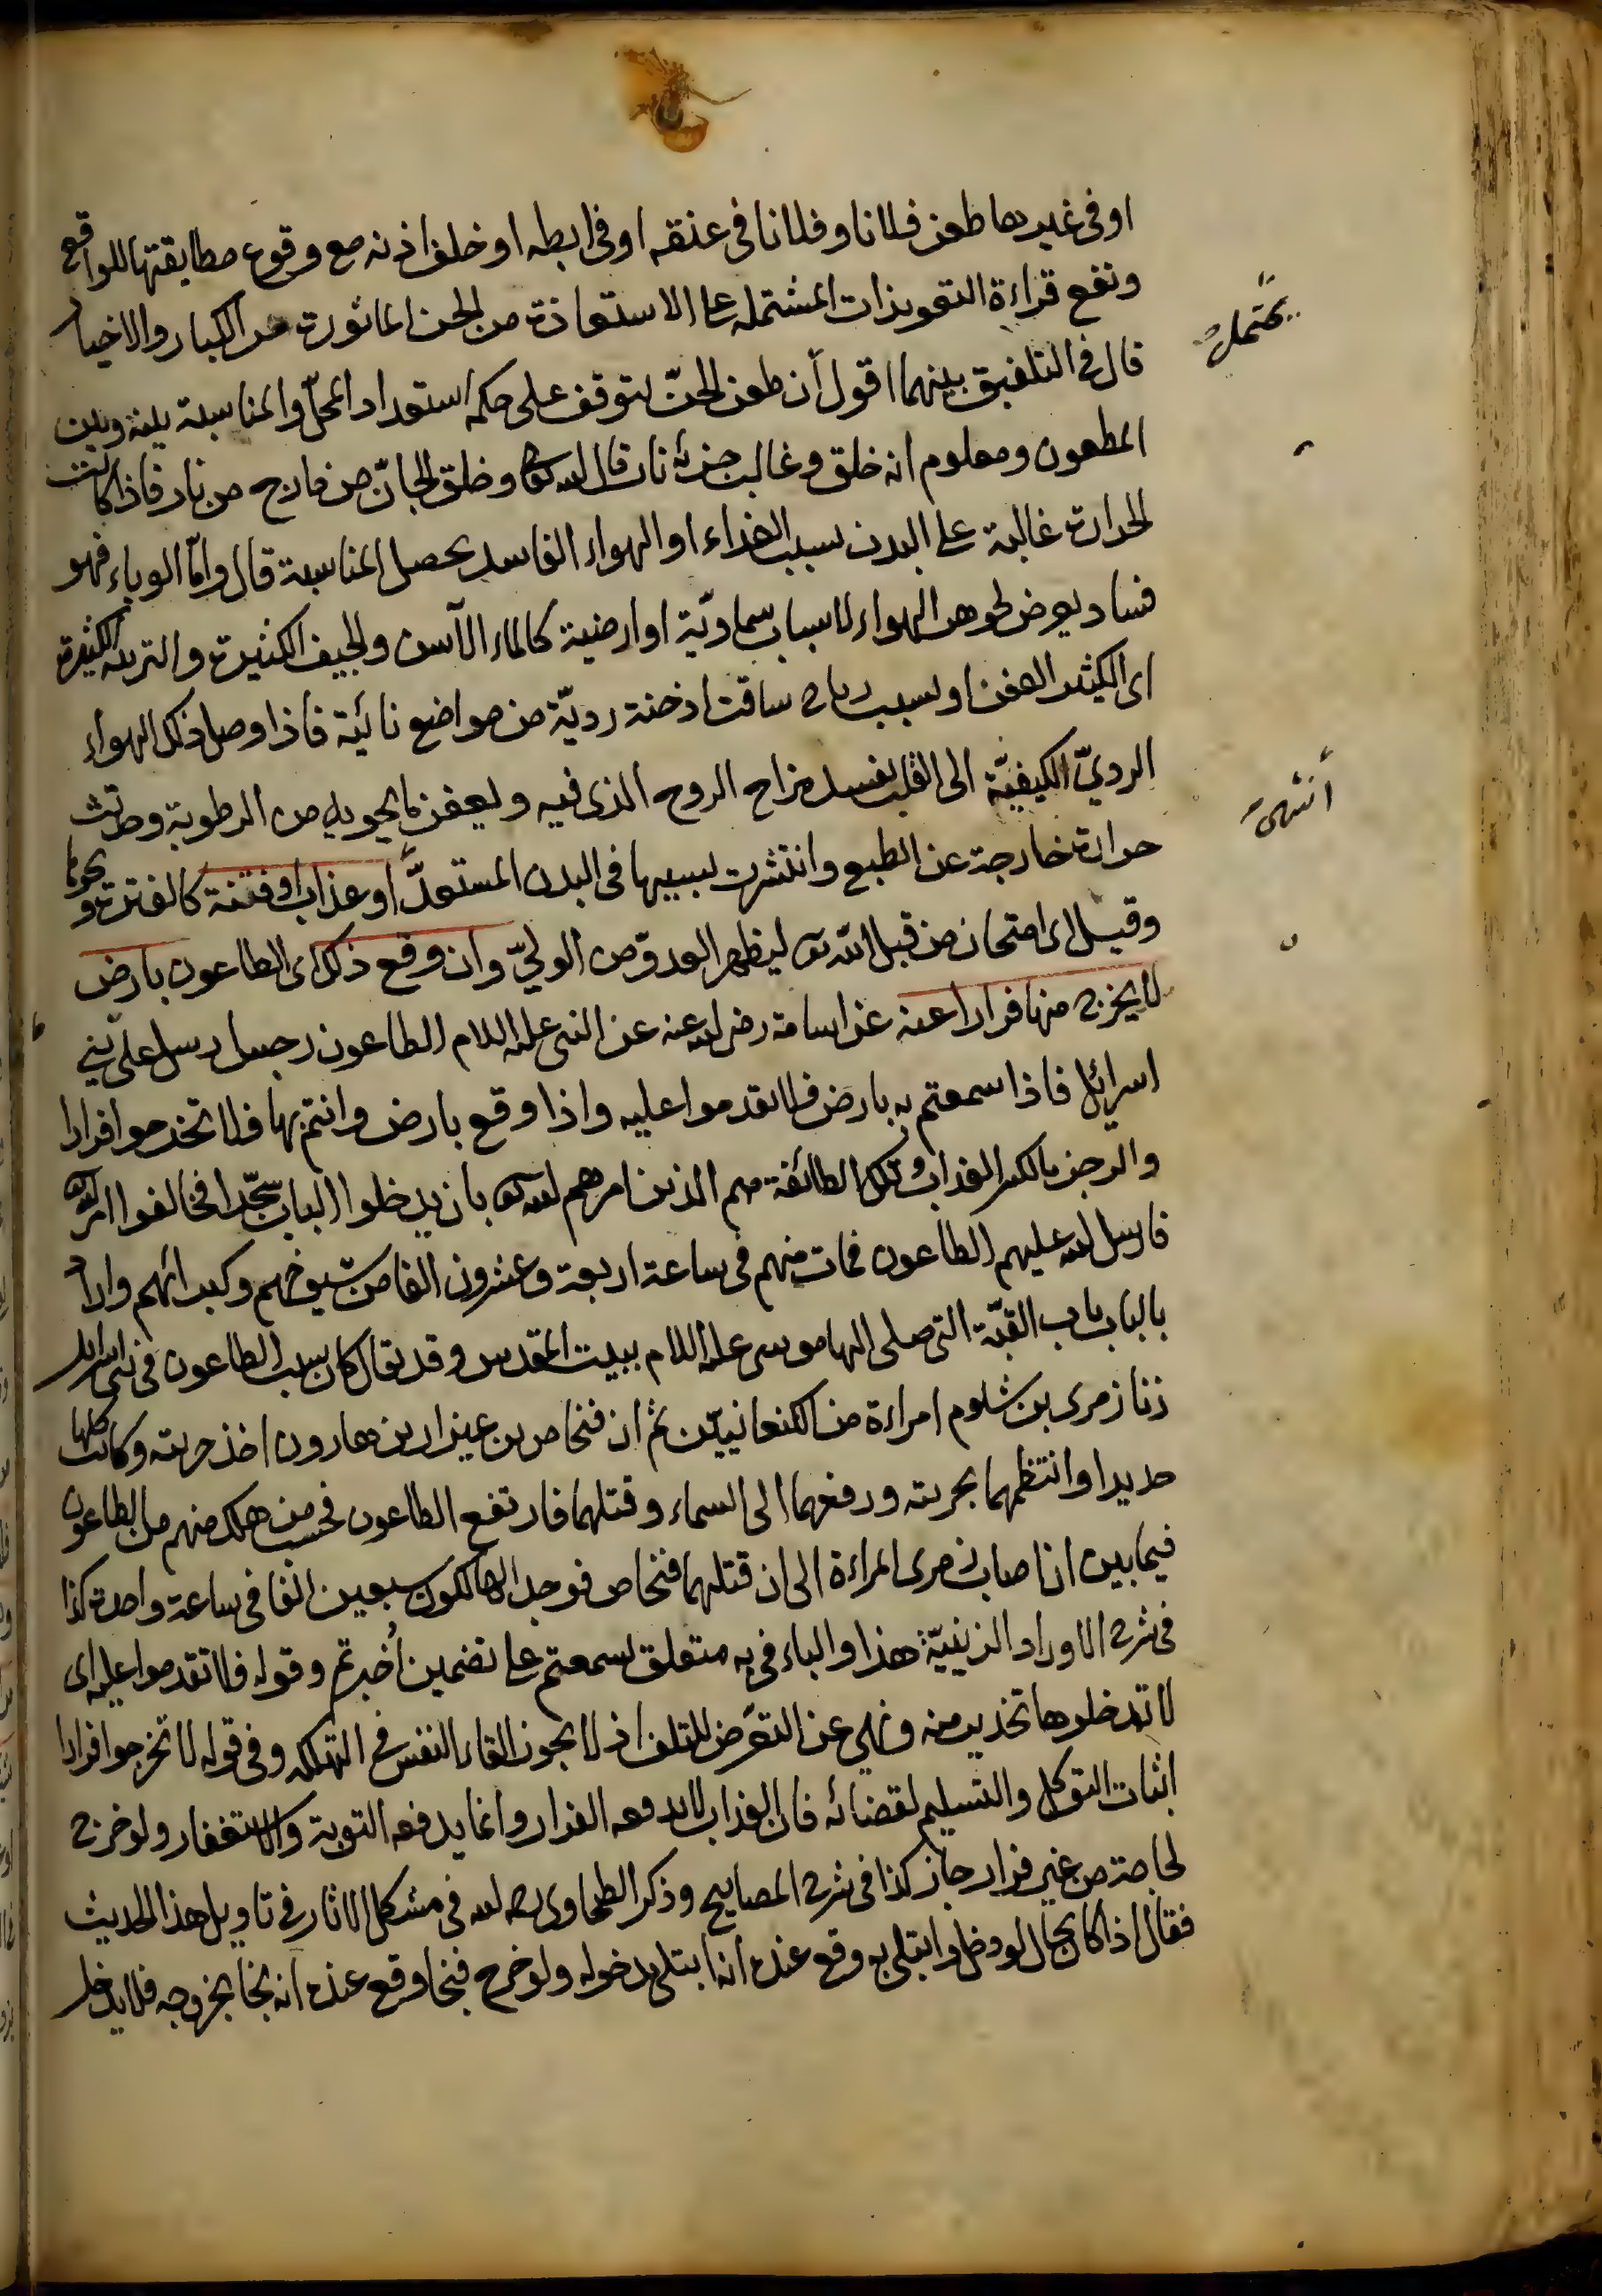 او فى غيرها طعن فلانا وفلانا فى عنقه او فى ابطه او خلف اذنه مع وقوع مطابقتها للواقع
ونفع قراءة التعويذات المشتملة على الاستعاذة من الجن الماثورة عن الكبار والاخيار
قال فى التلفيق بينهما اقول أن طعن الجنّ يتوقف على حكم استعداد المحلّ والمناسبة بينه وبين
المطعون ومعلوم انه خلق وغالب جزئه نار قال الله تعالى وخلق الجانّ من مارج من نار فاذا كانت
الحرارة غالبة على البدن بسبب الغذاء او الهواء الفاسد يحصل المناسبة قال وامّا الوباء فهو
فساد يعرض لجوهر الهواء لاسباب سماويّة او ارضية كالماء الآسن والجيف الكثيرة والتربة الكثيرة
اى الكثير العفن او بسبب رياح ساقت ادخنة رديّة من مواضع نائية فاذا وصل ذلك الهواء
الرديّ الكيفيّة الى القلب يفسد مزاج الروح الذى فيه ويعفن ما يحويه من الرطوبة وحدثت
حرارة خارجة عن الطبع وانتشرت بسببها فى البدن المستعدّ او عذاب او فتنة كالفترة ونحوها
وقيل اى امتحان من قبل الله تعالى ليظهر العدوّ من الوليّ وان وقع ذلك اى الطاعون بارض
لا يخرج منها فرارا عنه عن اسامة رضى الله عنه عن النبى عليه السلام الطاعون رجس ارسل على بنى
اسرائل فاذا سمعتم به بارض فلا تقدموا عليه واذا وقع بارض وانتم بها فلا تخرجوا فرارا
والرجز بالكسر العذاب وتلك الطائفة هم الذين امرهم الله تعالى بان يدخلوا الباب سجّدا فخالفوا امر الله
فارسل الله عليهم الطاعون فمات منهم فى ساعة اربعة وعشرون الفا من شيوخهم وكبرائهم واراد
بالباب باب القبّة التى صلى اليها موسى عليه السلام ببيت المقدس وقد يقال كان سبب الطاعون فى بنى اسرائل
زنا زمرى بن شلوم امراءة من الكنعانيين ثم ان فنحاص بن عيزار بن هارون اخذ حربته وكانت كلها
حديدا وانتظمهما بحربته ورفعهما الى السماء وقتلهما فارتفع الطاعون فحسب من هلك منهم من الطاعون
فيما بين ان اصاب زمرى المراءة الى ان قتلهما فنحاص فوجد الهالكون سبعين الفا فى ساعة واحدة كذا
فى شرح الاوراد الزينيّة هذا والباء فى به متعلق بسمعتم على تضمين أخبرتم وقوله فلا تقدموا عليه اى
لا تدخلوها تحذير منه ونهى عن التعرّض للتلف اذ لا يجوز القاء النفس فى التهلكة وفى قوله لا تخرجوا فرارا
اثبات التوكل والتسليم لقضائه فان العذاب لا يدفعه الفرار وانما يدفعه التوبة والاستغفار ولو خرج
لحاجة من غير فرار جاز كذا فى شرح المصابيح وذكر الطحاوى رحمه الله فى مشكل الاثار فى تاويل هذا الحديث
فقال اذا كان بحال لو دخل وابتلى به وقع عنده انه ابتلى بدخوله ولو خرج فنجا وقع عنده انه نجا بخروجه فلا يدخل
يحتمل
أنتهى